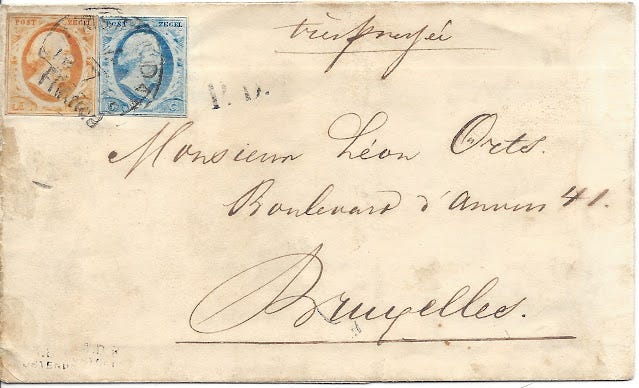 POST ZEGEL POST ZEGEL
15 C 5 C
Franco
très pressée
P.D.
Monsieur Léon Orts.
Boulevard d'Anvers 41.
Bruxelles.